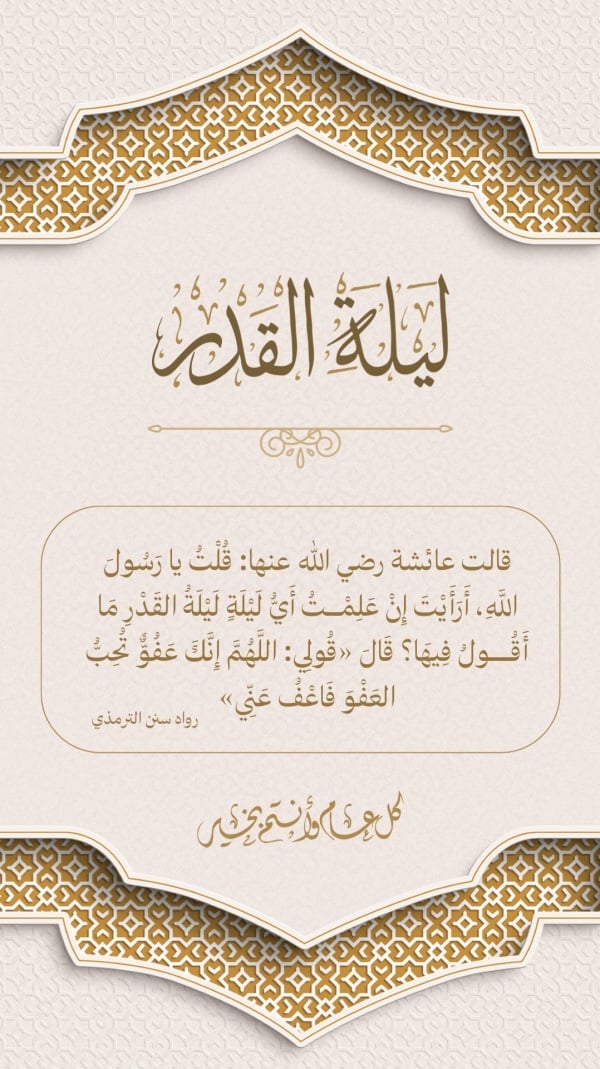 لَيلَةَ القَدْر
قالت عائشة رضي الله عنها: قُلْتُ يا رَسُولَ
اللَّهِ، أَرَأَيْتَ إِنْ عَلِمْـــتُ أَيُّ لَيْلَةٍ لَيْلَةُ القَدْرِ مَا
أَقُـــولُ فِيهَا؟ قَالَ «قُولِي: اللَّهُمَّ إِنَّكَ عَفُوٌّ تُحِبُّ
العَفْوَ فَاعْفُ عَنِّي»
رواه سنن الترمذي
كل عام وأنتم بخير